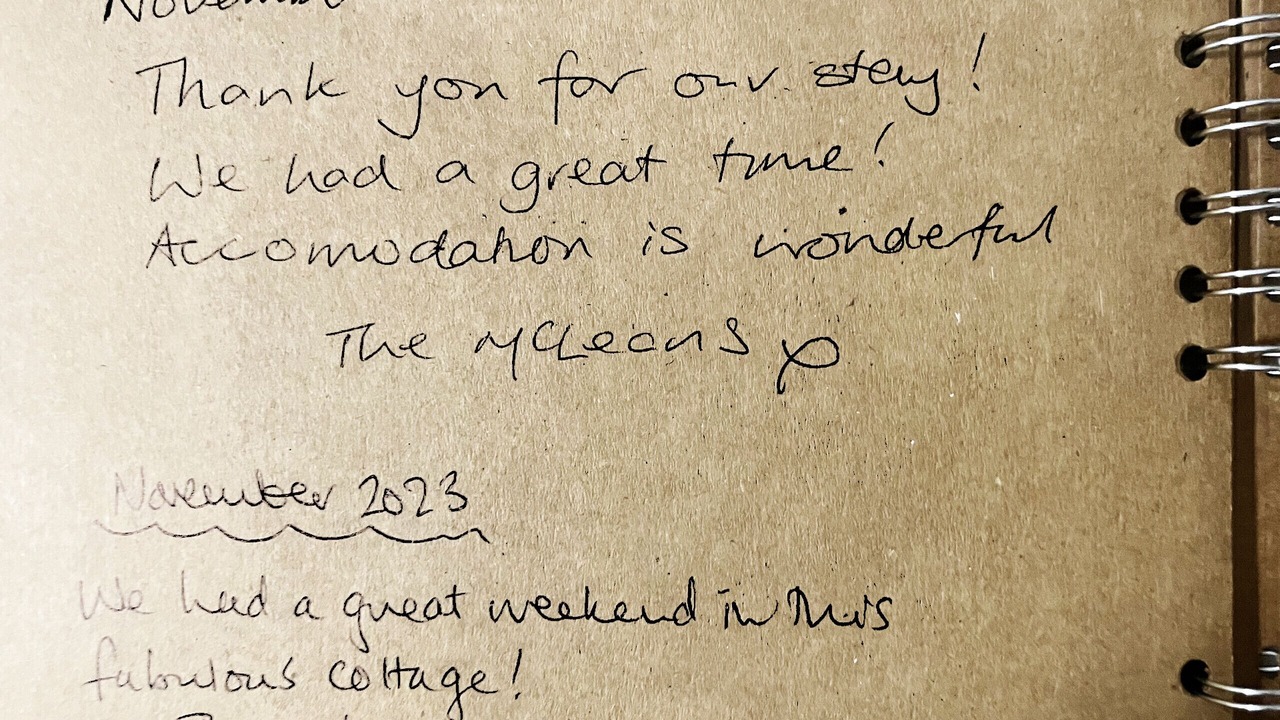 November
Thank you for our stay!
We had a great time!
Accomodation is wonderful
The McLeans x
November 2023
We had a great weekend in this
fabulous cottage!